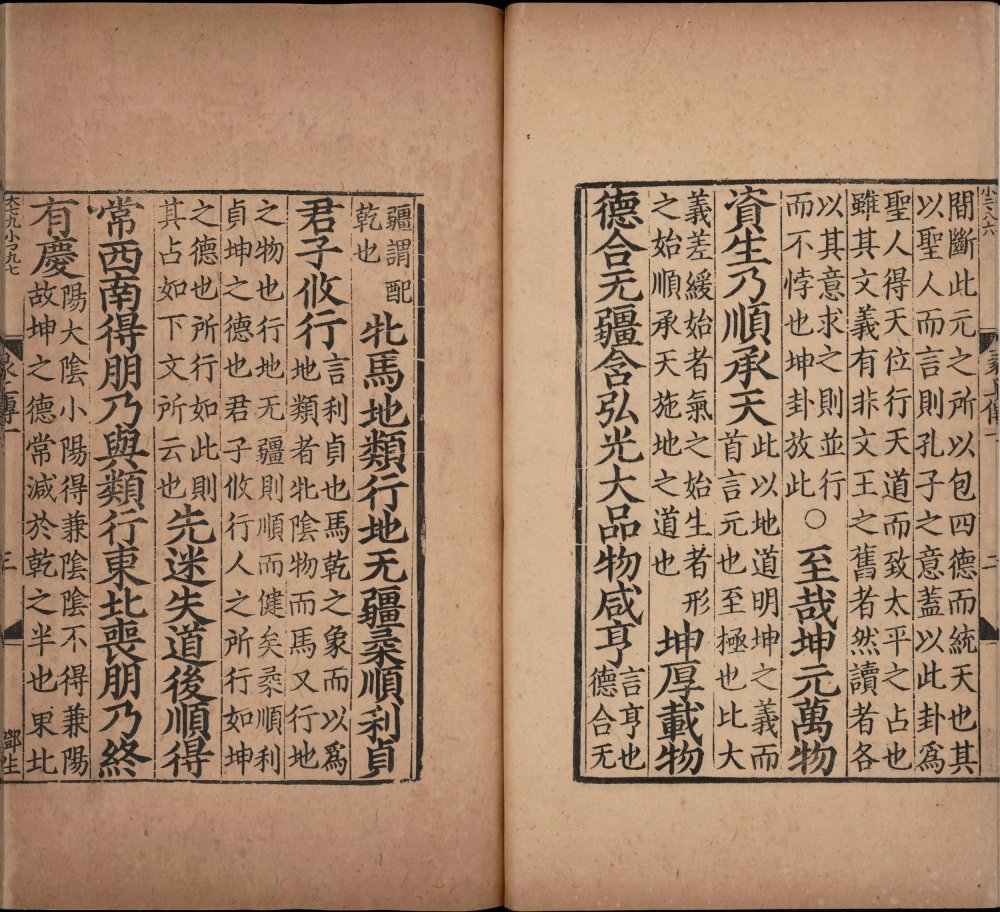 小三八六
二
間斷此元之所以包四德而統天也其
以聖人而言則孔子之意蓋以此卦為
聖人得天位行天道而致太平之占也
雖其文義有非文王之舊者然讀者各
以其意求之則並行
而不悖也坤卦放此
○至哉坤元萬物
資生乃順承天
此以地道明坤之義而
首言元也至極也比大
義差緩始者氣之始生者形
之始順承天施地之道也
坤厚載物
德合无疆含弘光大品物咸亨
言亨也
德合无
疆謂配
乾也
牝馬地類行地无疆柔順利貞
君子攸行
言利貞也馬乾之象而以為
地類者牝陰物而馬又行地
之物也行地无疆則順而健矣柔順利
貞坤之德也君子攸行人之所行如坤
之德也所行如此則
其占如下文所云也
先迷失道後順得
常西南得朋乃與類行東北喪朋乃終
有慶
陽大陰小陽得兼陰陰不得兼陽
故坤之德常減於乾之半也東北
三